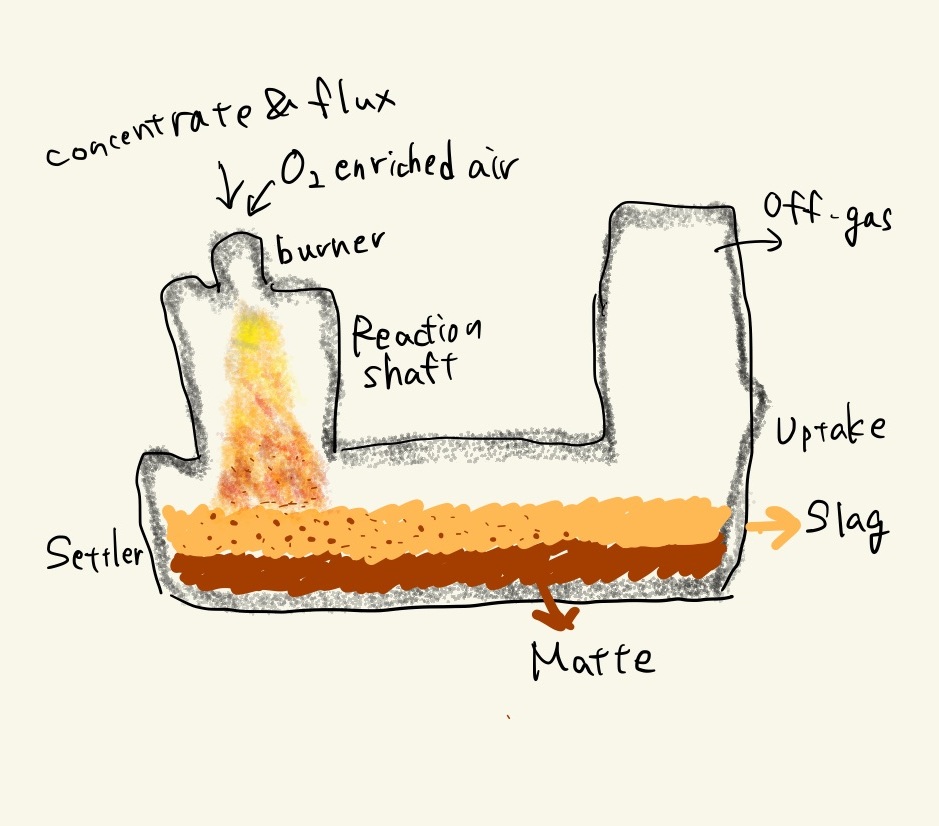 concentrate & flux
O₂ enriched air
burner
Off-gas
Reaction
shaft
Uptake
Slag
Settler
Matte